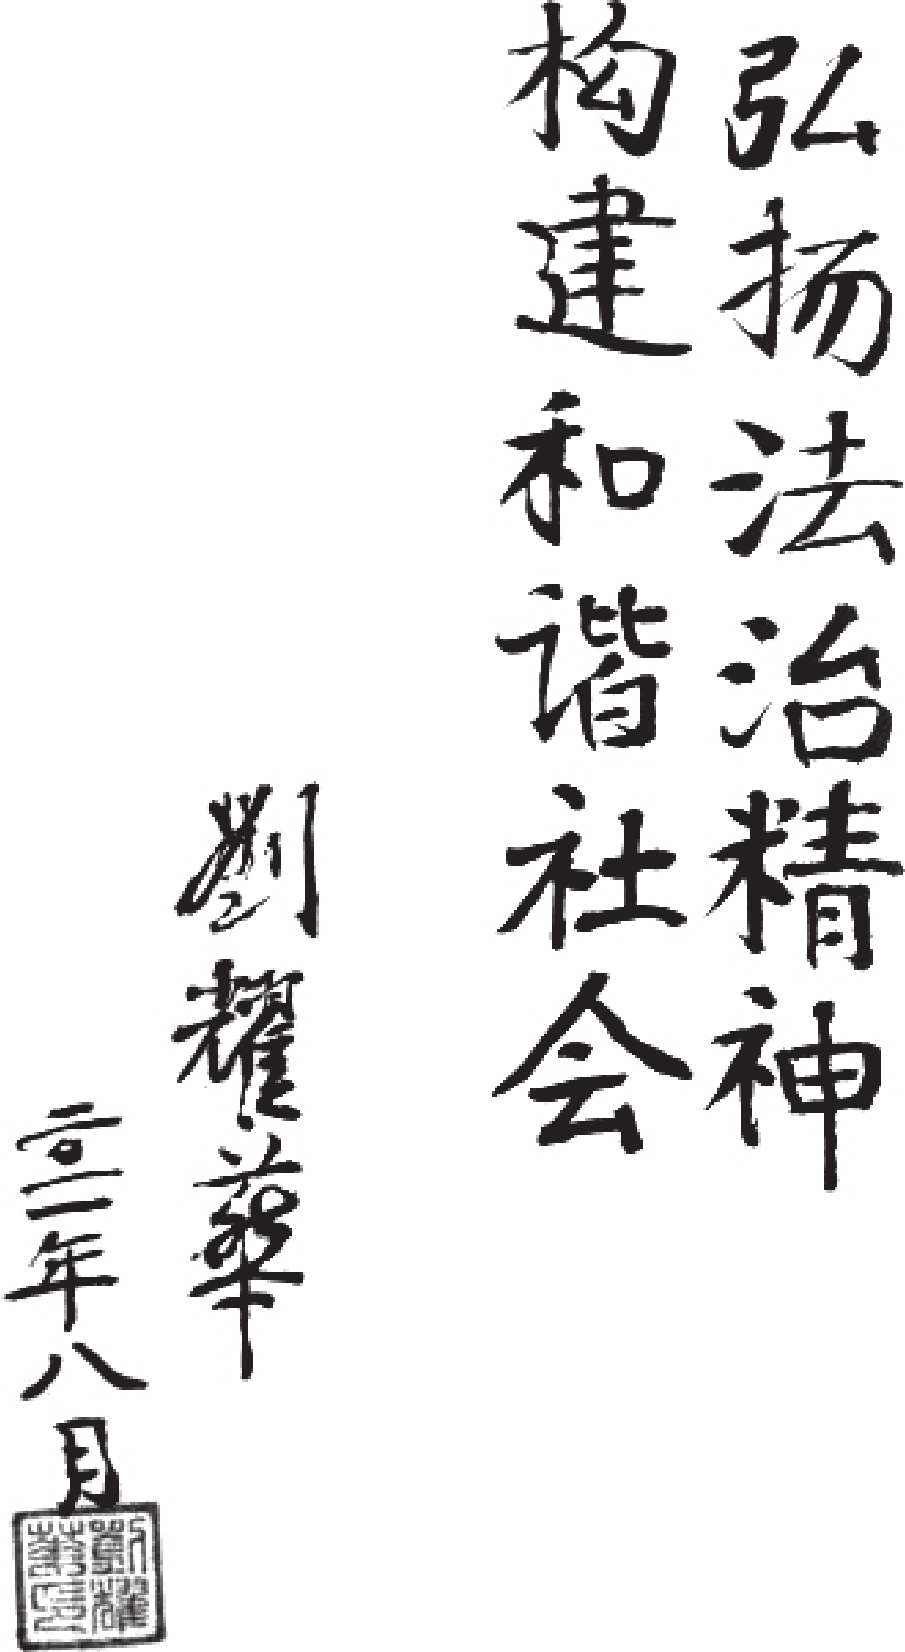 弘扬法治精神
构建和谐社会
劉耀華
二〇一一年八月